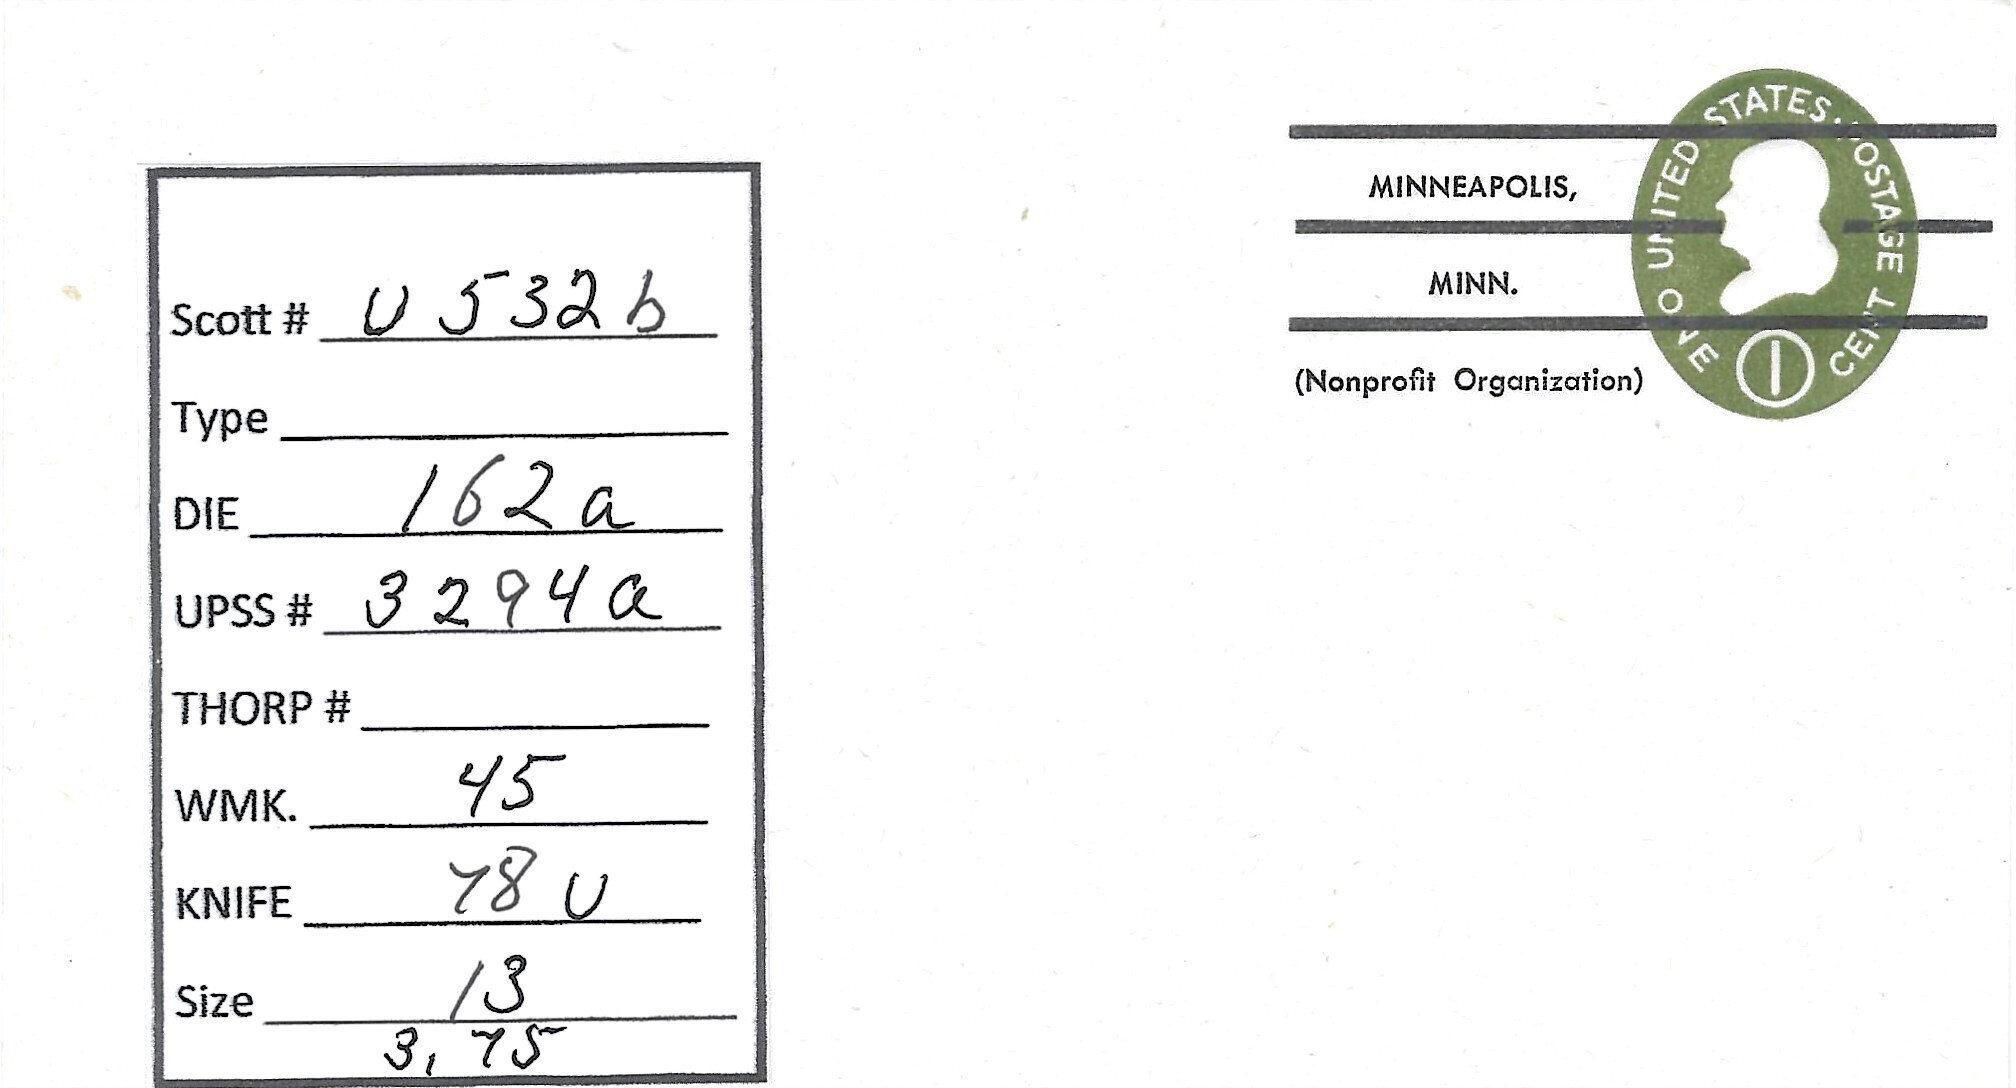 UNITED STATES POSTAGE
ONE CENT
1
MINNEAPOLIS,
MINN.
(Nonprofit Organization)
Scott # U532b
Type
DIE 162a
UPSS # 3294a
THORP #
WMK. 45
KNIFE 78 U
Size 13
3,75